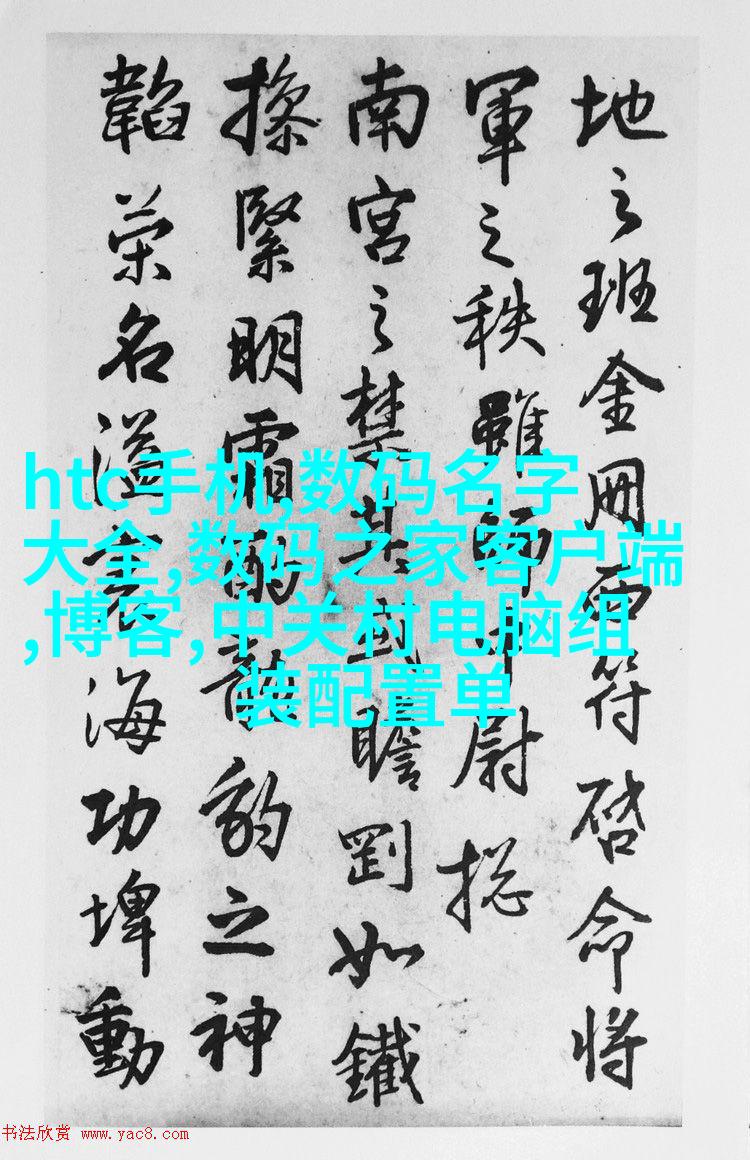 地之班金冊而符啓命将
軍之秩雖師中尉揔
南宮之禁其或瞻劉如鐵
操緊明霜酷豹之神
韜榮名溢寰海功埤動
htc手机,数码名字
大全,数码之家客户端
,博客,中关村电脑组
装配置单
书法欣赏 www.yac8.com